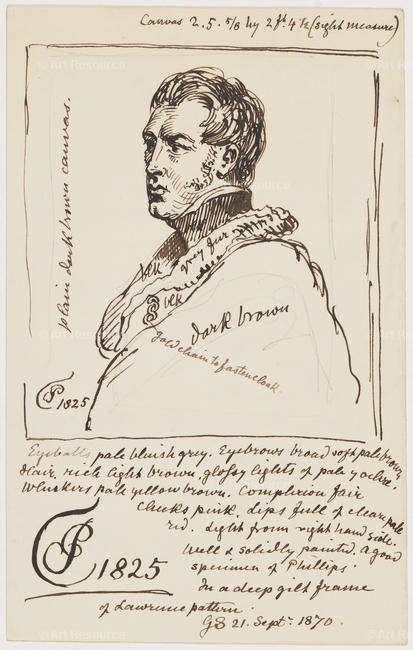 Canvas 2.5.⅝ by 2ft.4½ (sight measure)
plain dark brown canvas.
blk
grey fur
blk
dark brown
gold chain to fasten cloak.
TP 1825
Eyeballs pale bluish grey. Eyebrows broad soft pale brown
Hair. rich light brown. glossy lights of pale y ochre.
Whiskers pale yellow brown. Complexion fair
Cheeks pink. Lips full of clear pale
red. Light from right hand side.
Well & solidly painted. A good
specimen of Phillips.
TP 1825
In a deep gilt frame
of Lawrence pattern.
GS 21. Sept. 1870.
© Art Resource